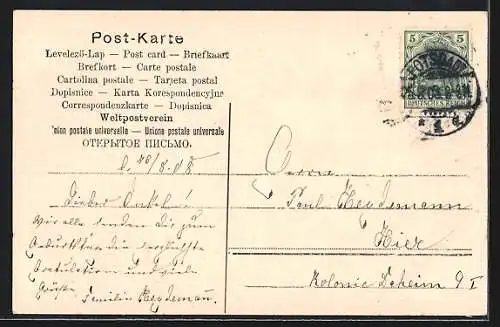 Post-Karte
Levelező-Lap — Post card — Briefkaart
Brefkort — Carte postale
Cartolina postale — Tarjeta postal
Dopisnice — Karta Korespondencyjna
Correspondenzkarte — Dopisnica
Weltpostverein
Union postale universelle — Unione postale universale
ОТКРЫТОЕ ПИСЬМО.
5 5
DEUTSCHES REICH
POTSDAM
1
Lieber Onkel!
Wir alle senden Dir zum
Geburtstag die herzlichste
Gratulation und viele
Grüße
Familie Heydemann.
Herrn
Paul Heydemann
Hier
Kolonie